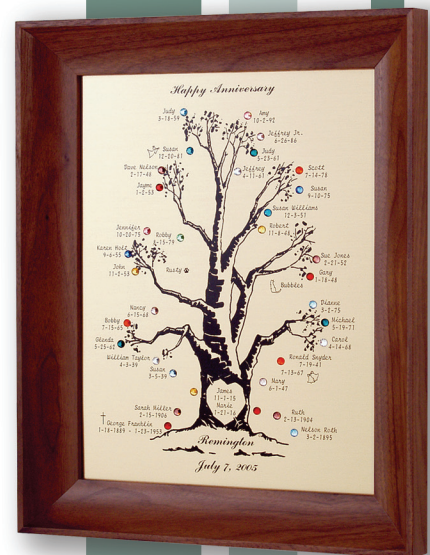 Happy Anniversary
Judy
Amy
10-2-92
Jeffrey Jr.
6-26-86
Susan
12-20-81
Judy
5-23-61
Dave Nelson
2-17-46
Jeffrey
4-11-61
Scott
7-14-78
Jayme
1-2-53
Susan
9-10-75
Susan Williams
12-3-51
Jennifer
10-20-75
Bobby
Robert
11-8-48
Karen Holt
9-6-55
Sue Jones
2-21-52
John
11-2-53
Rusty
Gary
1-18-48
Bubbles
Nancy
6-15-68
Dianne
3-2-75
Bobby
7-15-65
Michael
5-19-71
Glenda
5-25-62
Carol
4-14-68
William Taylor
4-3-39
Ronald Snyder
7-19-41
7-13-67
Susan
3-5-39
James
11-1-15
Marie
1-21-16
Mary
6-1-47
Sarah Miller
2-15-1906
Ruth
2-13-1904
George Franklin
1-18-1889 - 1-23-1955
Nelson Roth
3-2-1895
Remington
July 7, 2005